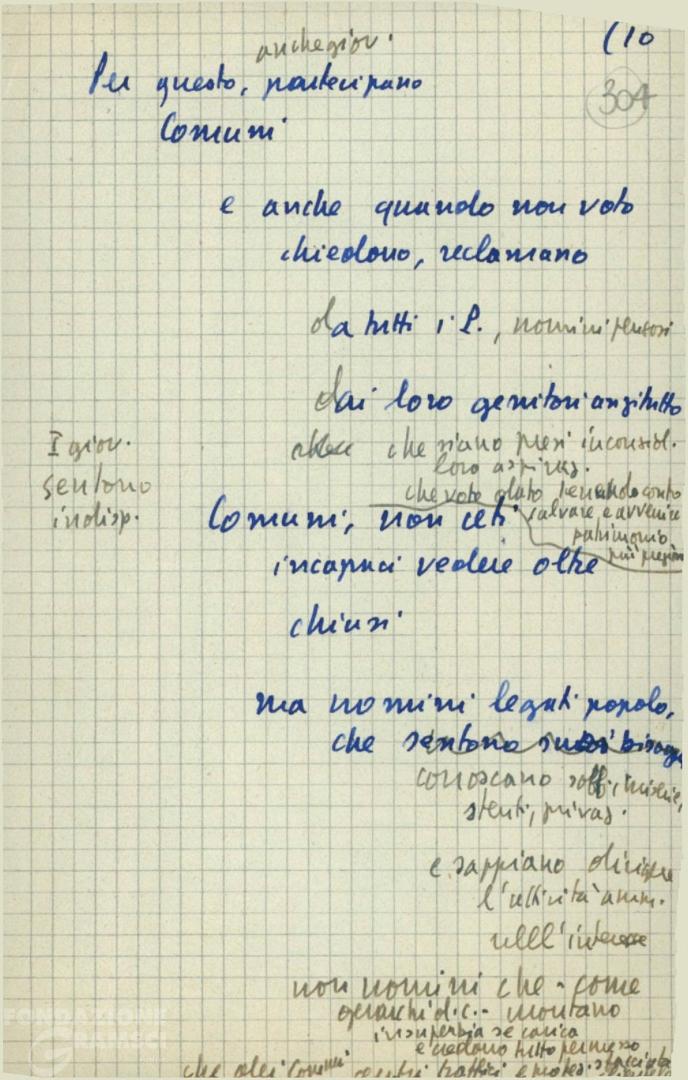 (10
304
anche giov.
Per questo, partecipano
Comuni
e anche quando non voto
chiedono, reclamano
da tutti i P., uomini pensosi
dai loro genitori anzitutto
che siano presi in consid.
loro aspiraz.
che voto dato tenendo conto
salvare e avvenire
patrimonio
più prezioso
I giov.
sentono
indisp.
Comuni, non ceti
incapaci vedere oltre
chiusi
ma uomini legati popolo,
che sentono suoi bisogni
conoscano soff., miserie,
stenti, privaz.
e sappiano dirigere
l'attività amm.
nell'interesse
non uomini che - come
gerarchi d.c. - montano
in superbia se carica
e credono tutto permesso
che dei Comuni centri traffici e
FONDAZIONE
GRAMSCI